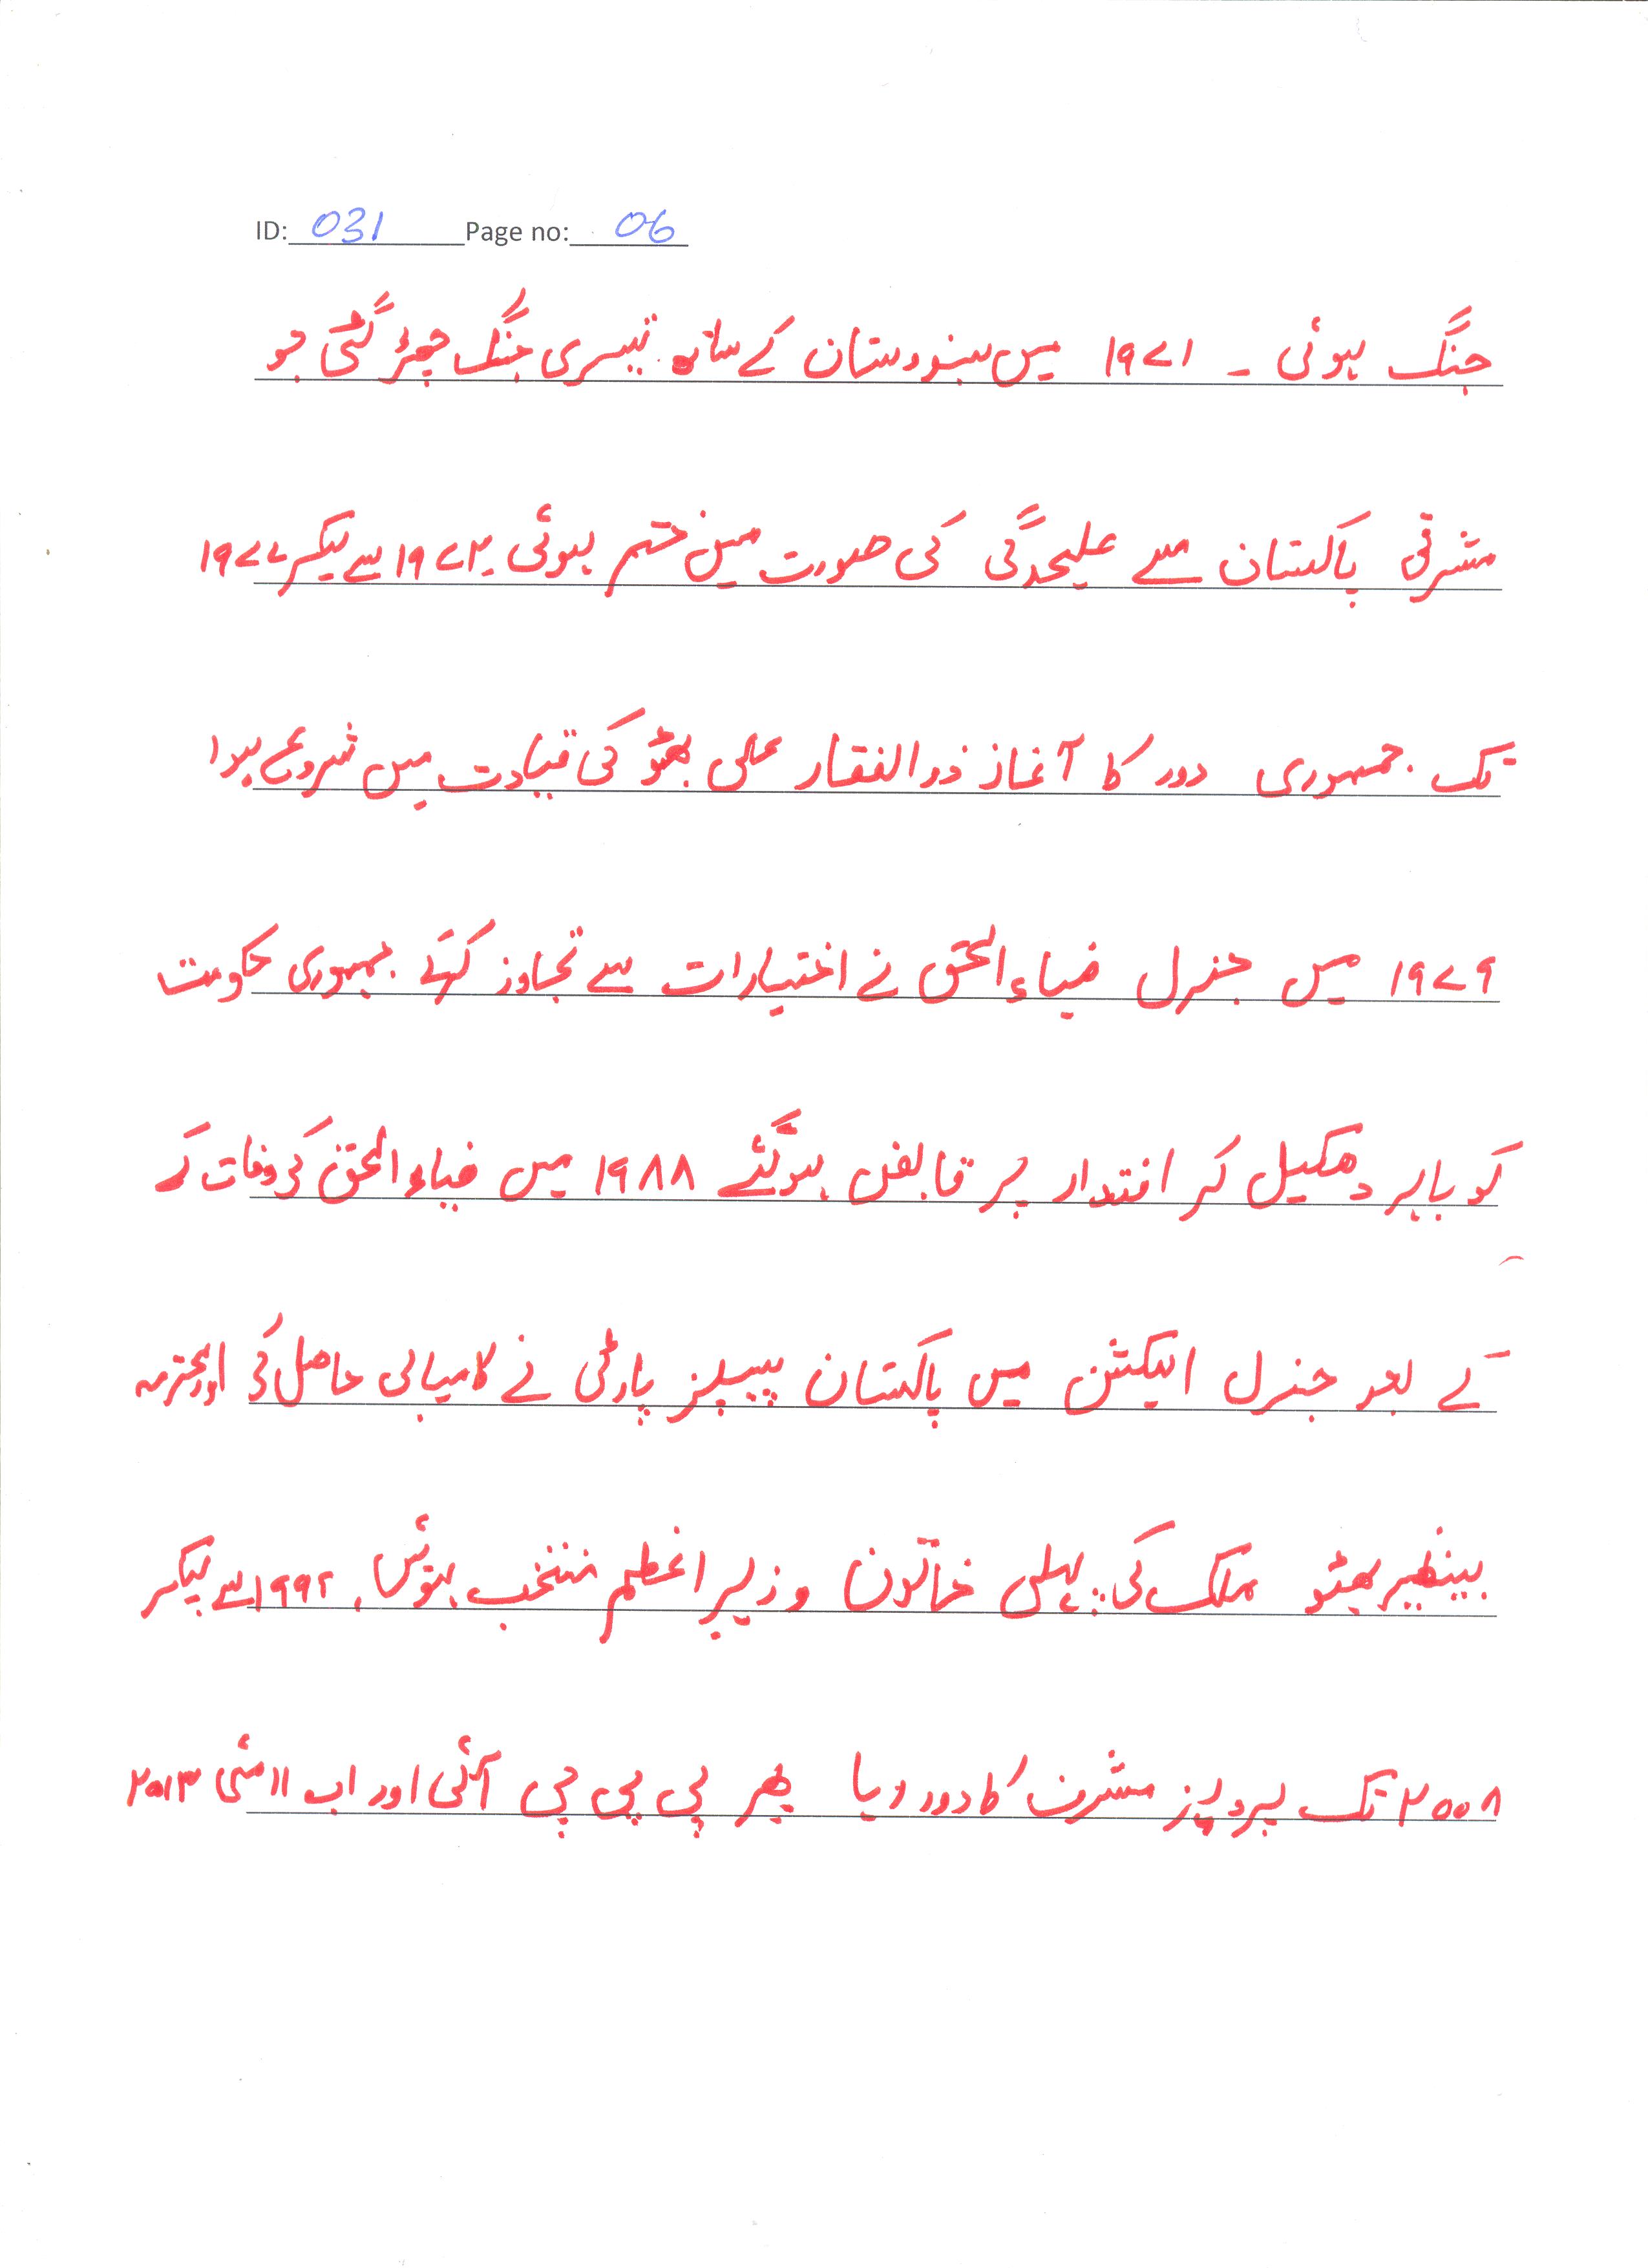 ID: 031 Page no: 06
جنگ ہوئی ۔ ۱۹۷۱ میں ہندوستان کے ساتھ تیسری جنگ چھڑ گئی جو
مشرقی پاکستان سے علیحدگی کی صورت میں ختم ہوئی ۔ ۱۹۷۲ سے لیکر ۱۹۷۷
تک جمہوری دور کا آغاز ذوالفقار علی بھٹو کی قیادت میں شروع ہوا
۱۹۷۹ میں جنرل ضیاء الحق نے اختیارات سے تجاوز کرکے جمہوری حکومت
کو باہر دھکیل کر اقتدار پر قابض ہوگئے ۱۹۸۸ میں ضیاء الحق کی وفات کے
کے بعد جنرل الیکشن میں پاکستان پیپلز پارٹی نے کامیابی حاصل کی اور محترمہ
بینظیر بھٹو ملک کی پہلی خاتون وزیر اعظم منتخب ہوئیں ۔ ۱۹۹۲ سے لیکر
۲۰۰۸ تک پرویز مشرف کا دور رہا پھر پی پی پی آئی اور اب ۱۱ مئی ۲۰۱۳